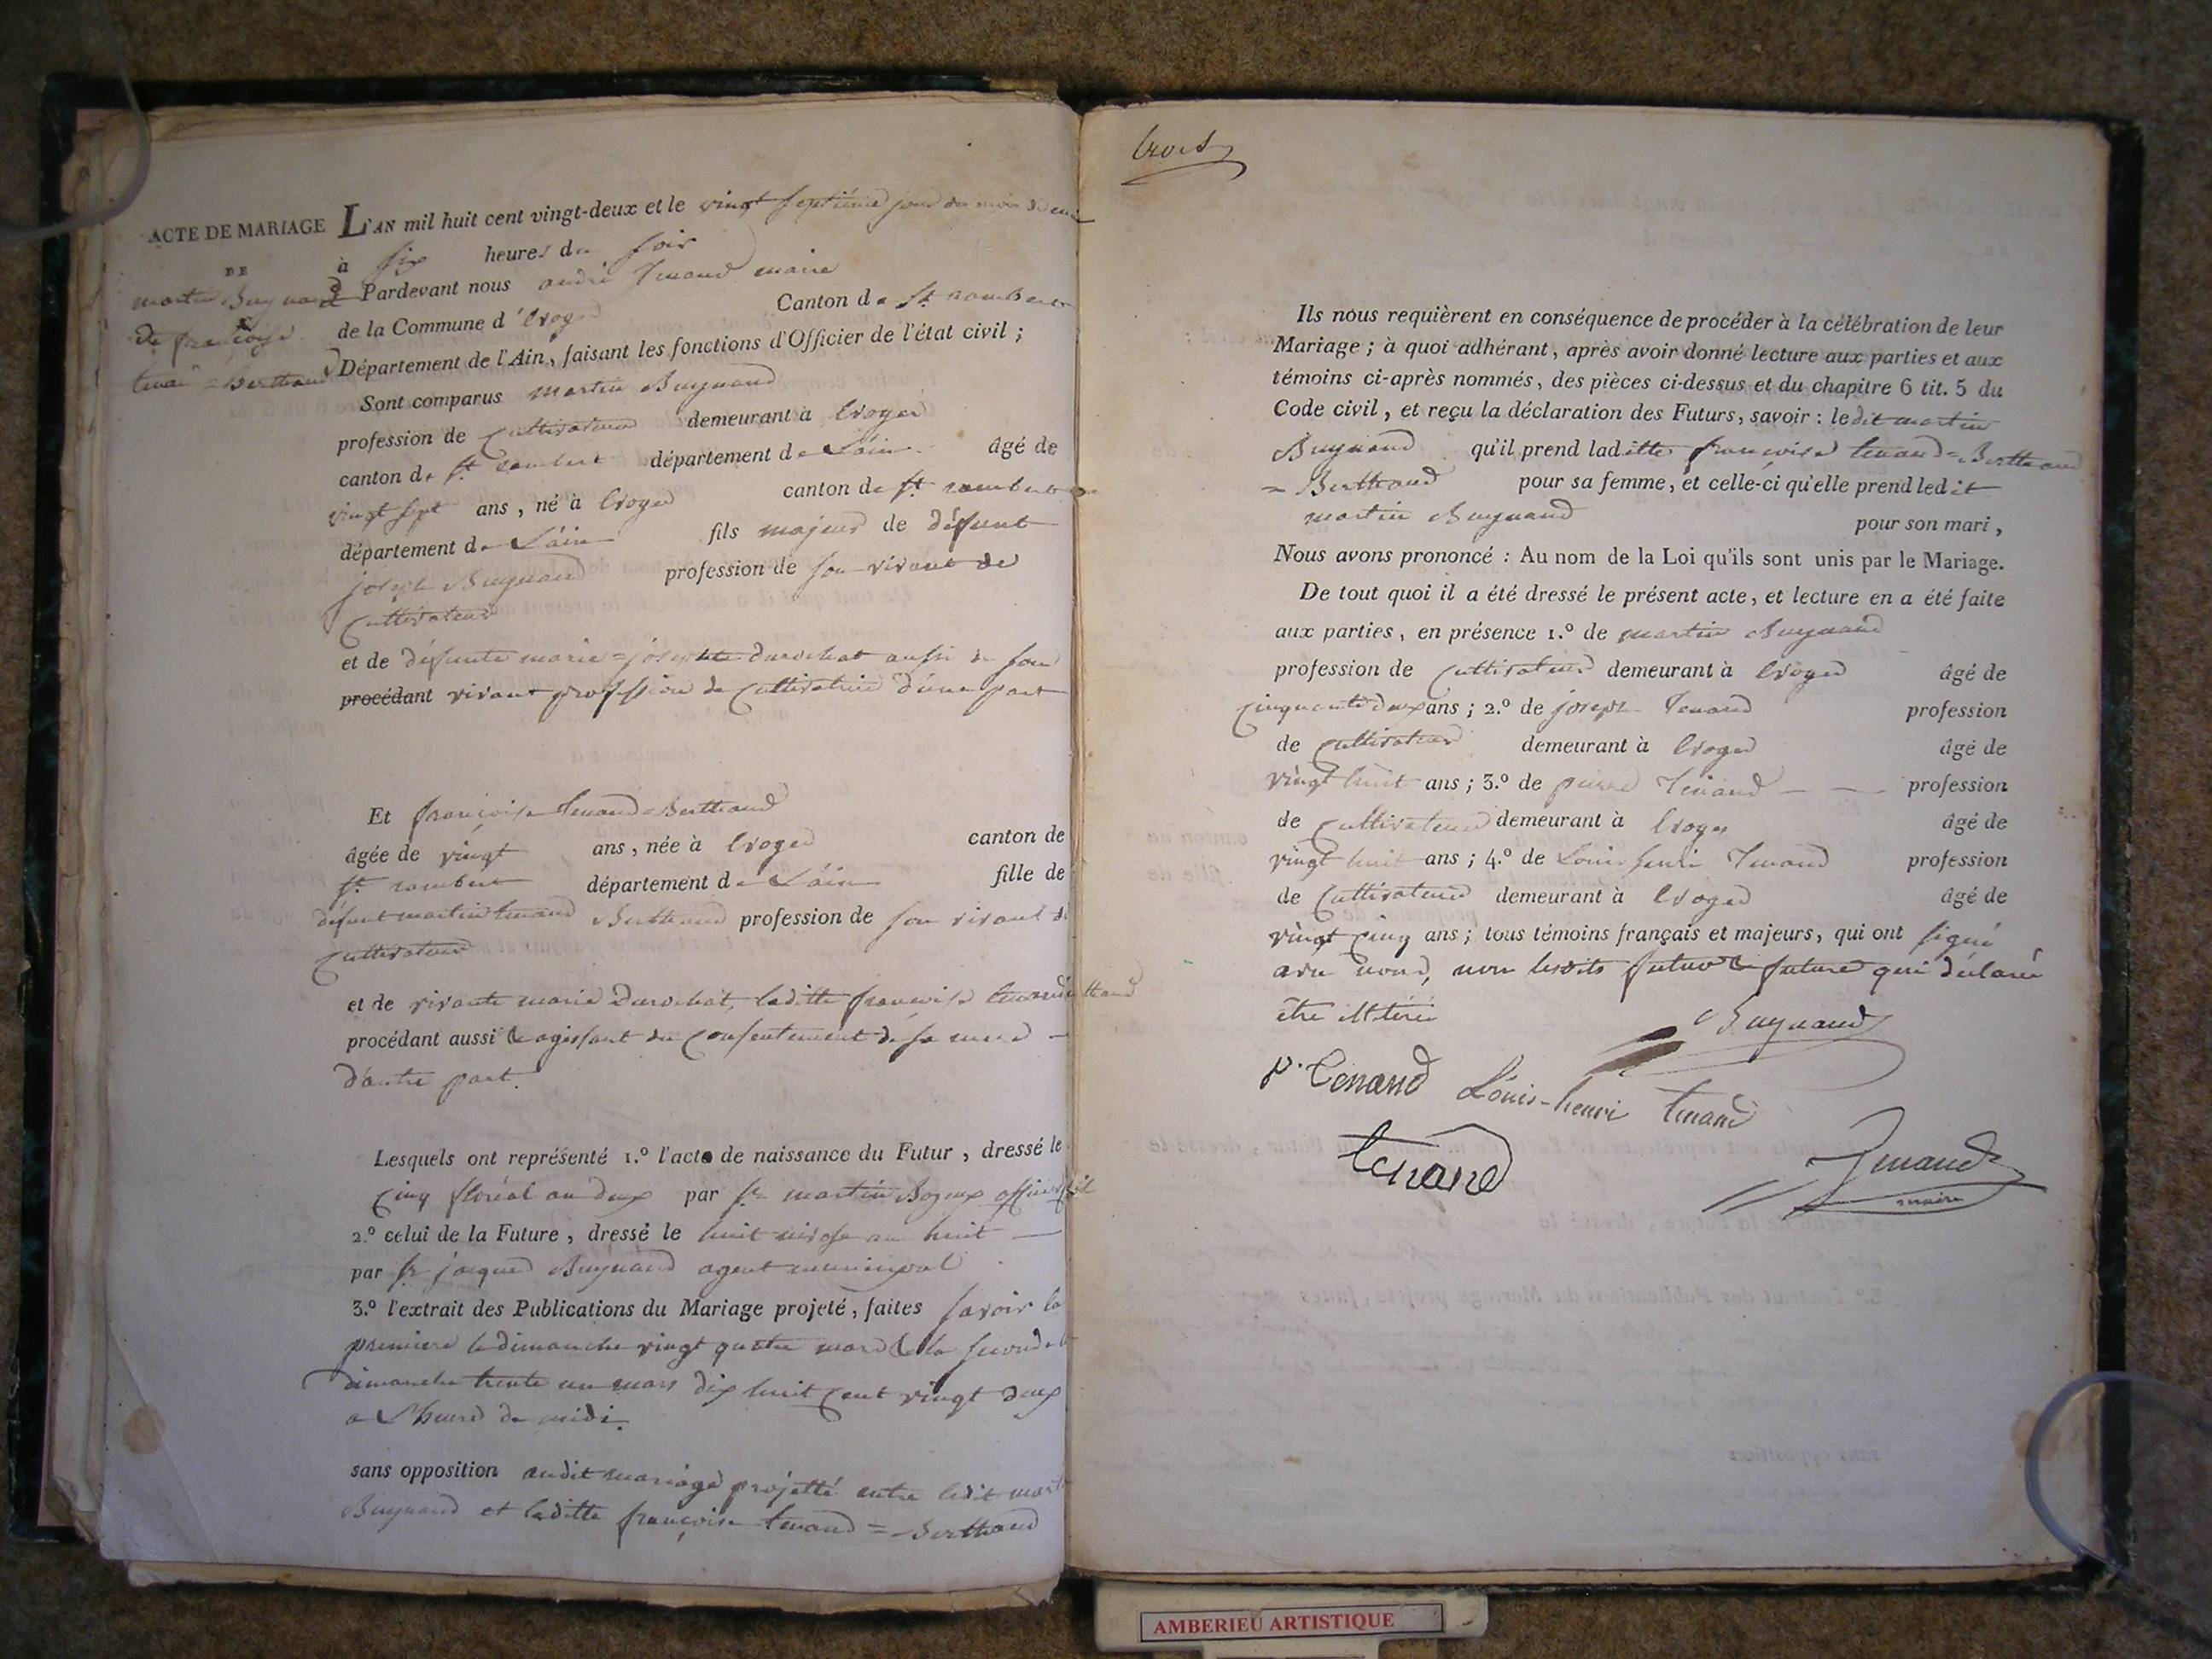 ACTE DE MARIAGE
DE
martin Buynand
& françoise
tenand = Berthaud
L'AN mil huit cent vingt-deux et le vingt septième jour du mois
à six heures du soir
Pardevant nous andré Tenand maire
de la Commune d'évoges Canton de st. rambert
Département de l'Ain, faisant les fonctions d'Officier de l'état civil ;
Sont comparus martin Buynand
profession de Cultivateur demeurant à évoges
canton de st. rambert département de L'ain âgé de
vingt sept ans, né à évoges canton de st. rambert
département de L'ain fils majeur de défunt
joseph Buynand profession de son vivant de
Cultivateur
et de défunte marie = josephte durochat aussi de son
procédant vivant profession de Cultivatrice d'une part
Et françoise tenand = Berthaud
âgée de vingt ans, née à évoges canton de
st. rambert département de L'ain fille de
défunt martin tenand Berthaud profession de son vivant de
Cultivateur
et de vivante marie Durochat, laditte françoise tenand Berthaud
procédant aussi & agissant du Consentement de sa mere
d'autre part.
Lesquels ont représenté 1.º l'acte de naissance du Futur, dressé le
Cinq floréal an deux par sr. martin officier
2.º celui de la Future, dressé le huit nivose an huit
par sr. jacques Buynand agent municipal
3.º l'extrait des Publications du Mariage projeté, faites savoir la
premiere le dimanche vingt quatre mars & la seconde le
dimanche trente un mars dix huit Cent vingt deux
a L'heure de midi.
sans opposition audit mariage projetté entre ledit martin
Buynand et laditte françoise tenand = Berthaud
trois
Ils nous requièrent en conséquence de procéder à la célébration de leur
Mariage ; à quoi adhérant, après avoir donné lecture aux parties et aux
témoins ci-après nommés, des pièces ci-dessus et du chapitre 6 tit. 5 du
Code civil, et reçu la déclaration des Futurs, savoir : ledit martin
Buynand qu'il prend laditte françoise tenand = Berthaud
= Berthaud pour sa femme, et celle-ci qu'elle prend ledit
martin Buynand pour son mari,
Nous avons prononcé : Au nom de la Loi qu'ils sont unis par le Mariage.
De tout quoi il a été dressé le présent acte, et lecture en a été faite
aux parties, en présence 1.º de martin Buynand
profession de Cultivateur demeurant à évoges âgé de
Cinquante deux ans ; 2.º de joseph Tenand profession
de Cultivateur demeurant à évoges âgé de
vingt huit ans ; 3.º de pierre Tenand profession
de Cultivateur demeurant à évoges âgé de
vingt huit ans ; 4.º de Louis henri Tenand profession
de Cultivateur demeurant à évoges âgé de
vingt Cinq ans ; tous témoins français et majeurs, qui ont signé
avec nous, non lesdits futur & future qui déclaré
être illitéré
Buynand
p. Tenand Louis-henri tenand
tenand
Tenand
maire
AMBERIEU ARTISTIQUE